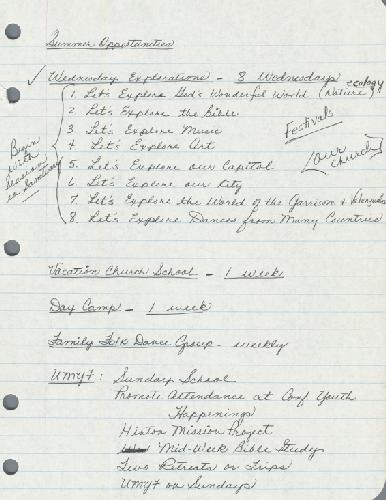 Summer Opportunities
✓ Wednesday Explorations - 8 Wednesdays
1. Let's Explore God's Wonderful World (Nature) ecology
2. Let's Explore the Bible
3 Let's Explore Music
4 Let's Explore Art
5. Let's Explore our Capitol
6 Let's Explore our City
7. Let's Explore the World of the Garrison &
8. Let's Explore Dances from Many Countries
Festivals
[Our Church]
Begin
with
in Sanctuary
Vacation Church School - 1 week
Day Camp - 1 week
Family Folk Dance Group - weekly
UMYF: Sunday School
Promote Attendance at Conf Youth
Happenings
Hinton Mission Project
Mid-Week Bible Study
Two Retreats or Trips
UMYF on Sundays